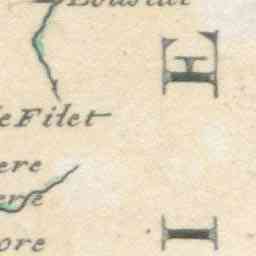 e Filet
ere
erse
ore
E
I